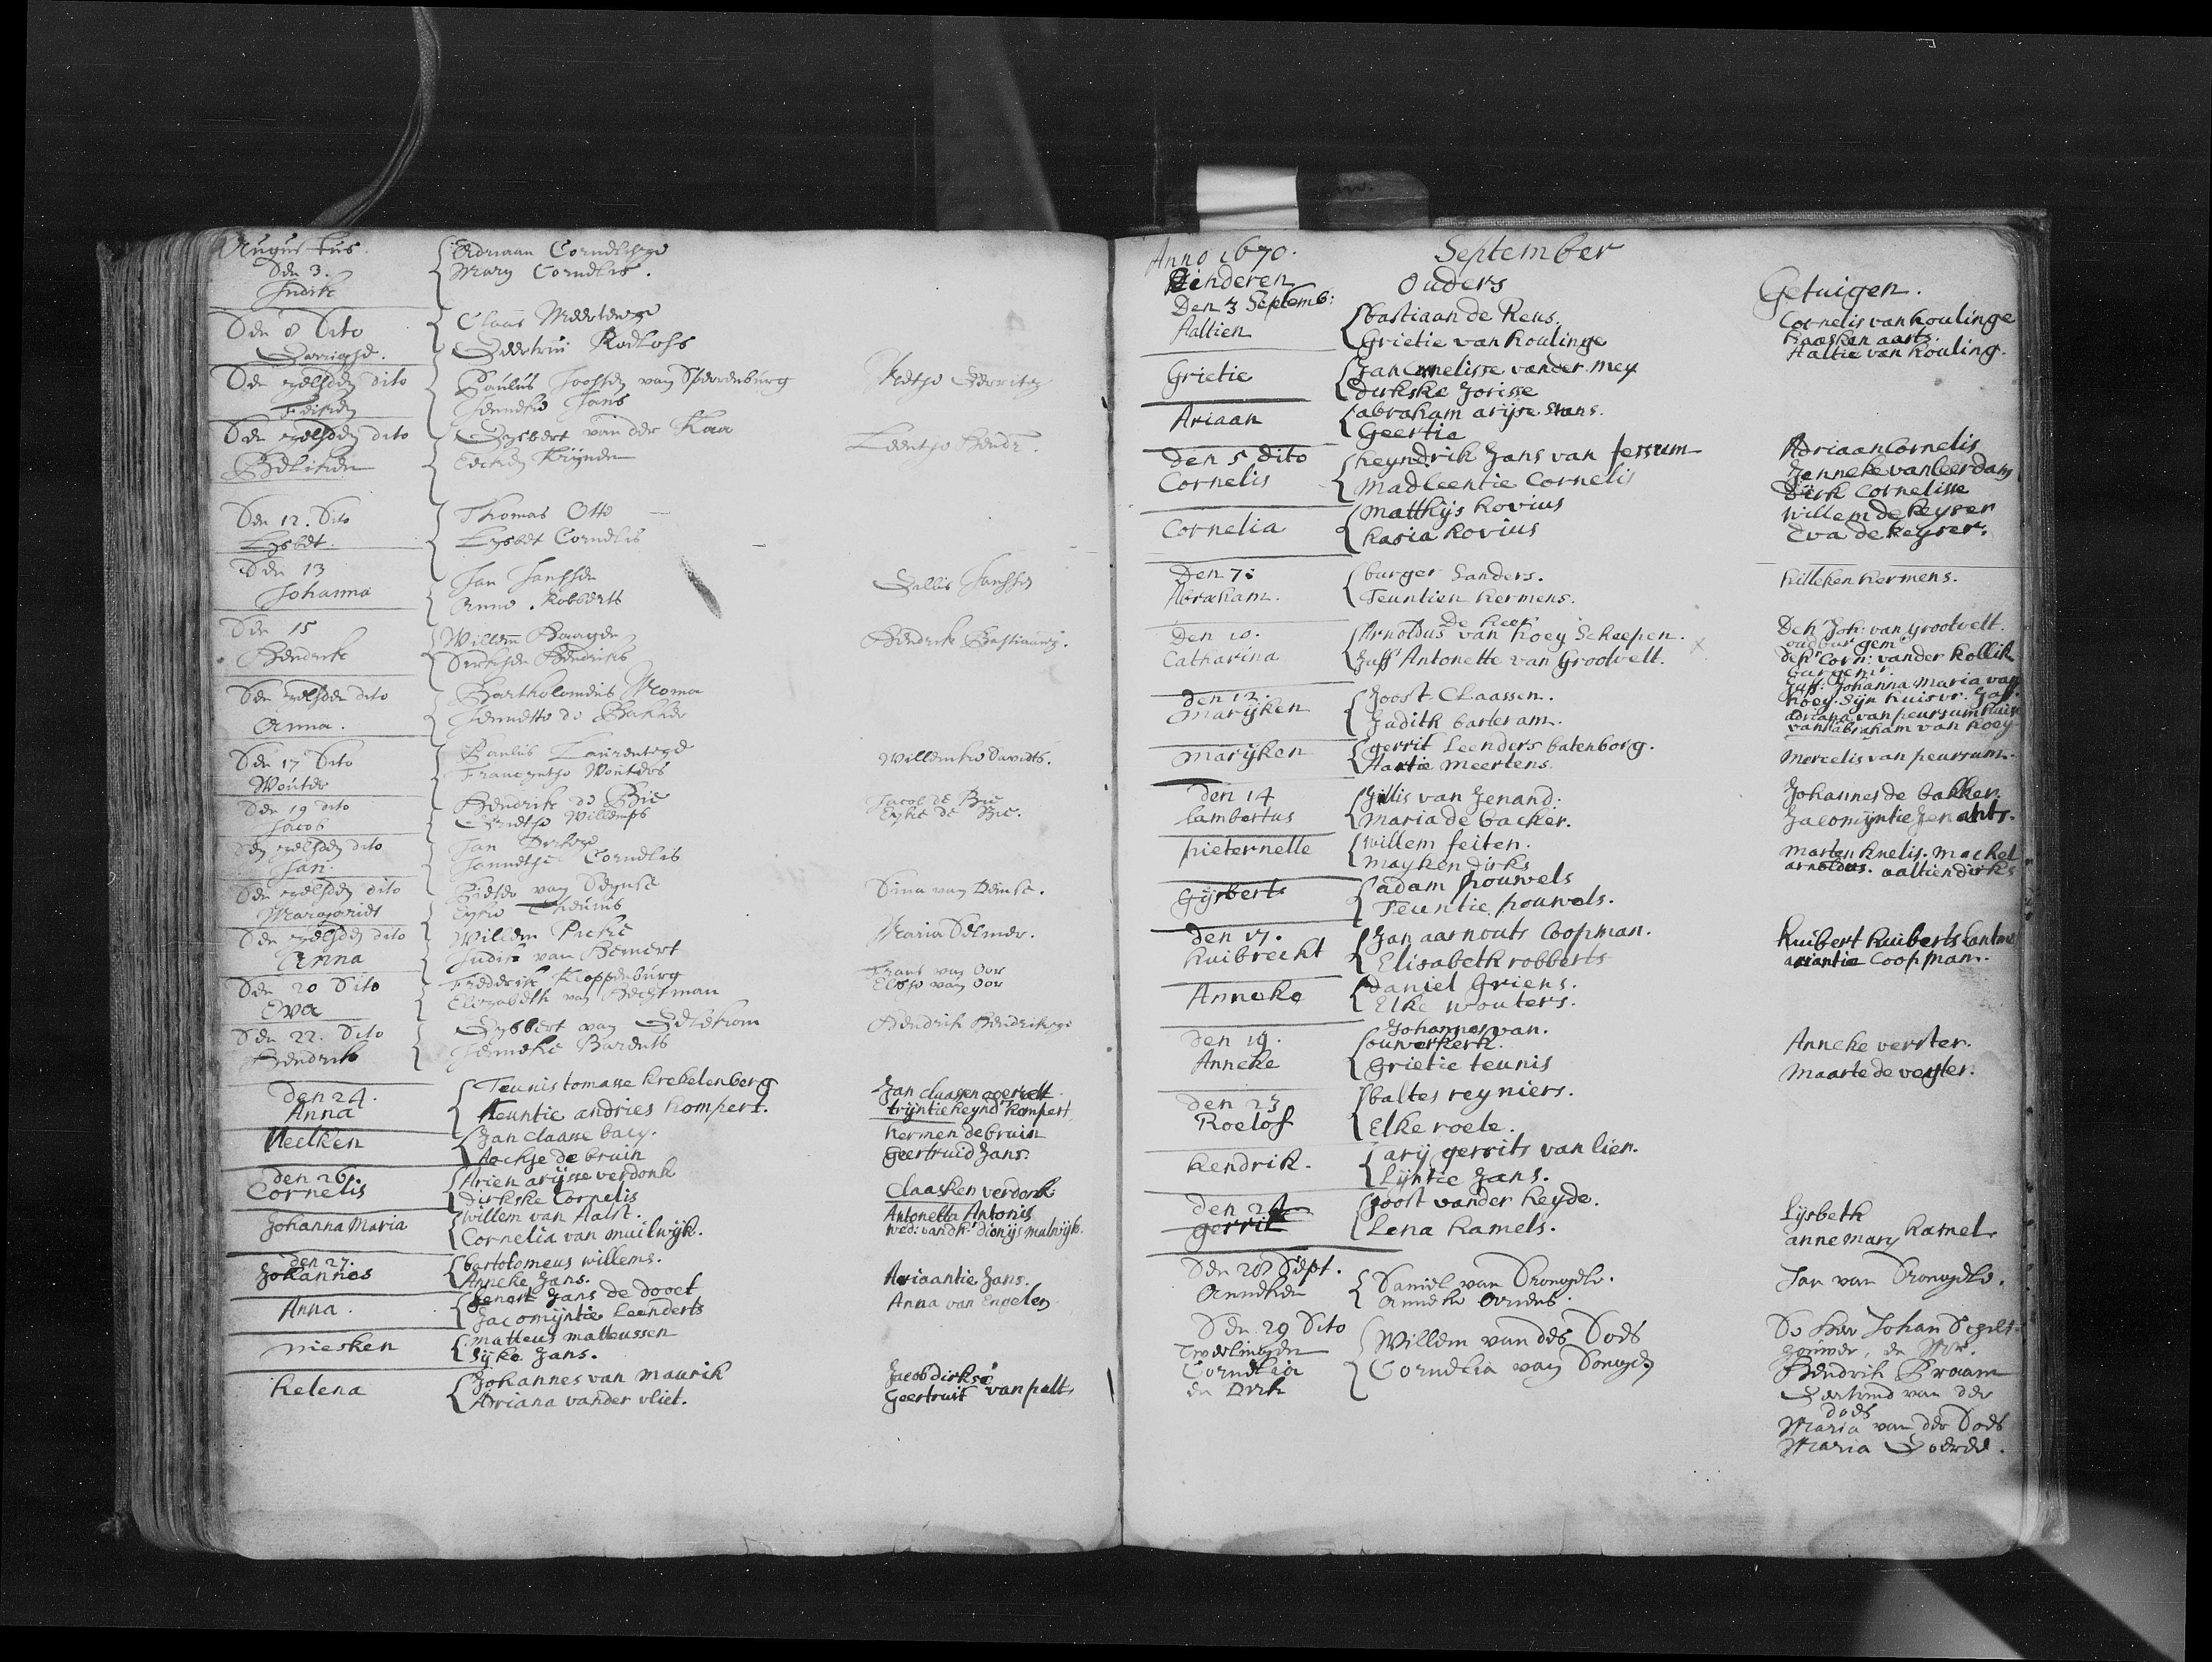 Augustus
Den 3.
Judik
Adriaan Cornelisze
Mary Cornelis.
Den 8 Dito
Claas Meertensze
Geertrui Roelofs
Den zelfden dito
Feijken
Paulus Joosten van Sprewenburg
Jenneke Jans
Aeltje Gerrits
Den zelfden dito
Gysbert van der Kaa
Eecken Krijnen
Leentje Hendr.
Den 12. Dito
Lysbet.
Thomas Otto
Lysbet Cornelis
Den 13
Johanna
Jan Janssen
Anna Robberts
Gallis Janssen
Den 15
Hendrik
Willem Baayen
Dirksken Hendriks
Hendrik Bastiaansz.
Den zelfden dito
Anna.
Bartholomeus Moma
Jennetta de Bakker
Den 17 Dito
Wouter
Paulus Laurentsze
Francyntje Wouters
Willemke Davidts.
Den 19 dito
Jacob
Hendrik de Bie
Grietje Willemss
Jacob de Bie
Eyke de Bie.
Den zelfden dito
Jan
Jan Dirksze
Jannetje Cornelis
Den zelfden dito
Margariet
Pieter van Deynse
Eyke Theunis
Dina van Deinse.
Den zelfden dito
Anna
Willem Pieke
Judik van Bemert
Maria Selmer.
Den 20 Dito
Eva
Frederik Kloppenburg
Elizabeth van Hechtman
Frans van Oor
Elsje van Oor
Den 22. Dito
Hendrik
Gysbert van Gelekom
Jenneke Barents
Hendrik Hendriksze
Den 24.
Anna
Teunis tomasse krekelenberg
teuntie andries kompert.
Jan claassen
trijntie heynd. kompert
Neelken
Jan Claasse baey.
Aechje de bruin
hermen de bruin
geertruid Jans.
den 26.
Cornelis
Arien arijsse verdonk
dirkske Cornelis
Claasken verdonk
Johanna Maria
willem van Aalst.
Cornelia van muilwijk.
Antonetta Antonis
wed: van dhr dionijs mulwijk.
den 27.
Johannes
bartolomeus willems.
Anneke Jans.
Ariaantie Jans.
Anna.
Jenort Jans de dooet
Jacomijntie Leenderts
Anna van Engelen
niesken
matteus matteussen
Sijke Jans.
helena
Johannes van maurik
Adriana vander vliet.
Jacob dirkse
Geertruit van pelt.
Anno 1670.
September
Kinderen
Ouders
Getuigen.
Den 3 Septemb:
Aaltien
bastiaan de Reus.
Grietie van houlinge
Cornelis van houlinge
haasken aarts.
Aaltie van houling.
Grietie
Jan Cornelisse vander mey
dirkske Jorisse
Ariaan
abraham arijse Snans.
Geertie
Den 5 dito
Cornelis
heyndrik Jans van fessum
Madleentie Cornelis
Adriaan Cornelis
Jenneke van leerdam
Dirk Cornelisse
Cornelia
Matthijs hovius
hasia hovius
Willem de keyser
Eva de keyser.
Den 7:
Abraham.
burger Sanders.
Teuntien hermens.
hilleken hermens.
Den 10.
Catharina
De heer
Arnoldus van hoey Scheepen.
Juffr Antonette van Grootvelt.
De hr Joh: van grootvelt.
oud burgemr
De hr Corn: vander kollik
burgemr.
Juffr. Johanna Maria van
hoey. Sijn huisvr. Juff.
adriana van peursum huisvr
van abraham van hoey
den 12.
marijken
Joost Claassen.
Judith bartesam.
marijken
gerrit Leenders batenborg.
Aartie meertens.
mercelis van peursum.
den 14
lambertus
Jillis van Jenand.
Maria de backer.
Johannes de bakker.
Jacomijntie Jenants.
pieternelle
willem feiten.
mayken dirks
marten knelis. machel
arnoldus. aaltien dirks
Gijsberts
adam pouwels
Teuntie pouwels.
den 17.
huibrecht
Jan aarnouts Coopman.
Elisabeth robberts
huibert huiberts
ariantie Coopman.
Anneke
Daniel Griens.
Elke wouters.
den 19.
Anneke
Johannes van.
ouwerkerk.
Grietie teunis
Anneke verster.
Maarte de veyter.
den 23
Roelof
baltes reyniers.
Elke roele.
hendrik.
arij gerrits van lien.
Lijntie Jans.
den 24
gerrit
Joost vander heyde.
Lena hamels.
Lijsbeth
anne mary hamel
Den 28 Sept.
Anneken
Daniel van Bronyelo.
Anneke Ovrens.
Jan van Bronyelo.
Den 29 Dito
Tweelingen
Cornelia
en Dirk
Willem van der Does
Cornelia van Dongen
De Heer Johan
Hendrik Braam
Geertruid van der
does
Maria van der Does
Maria Goeree.